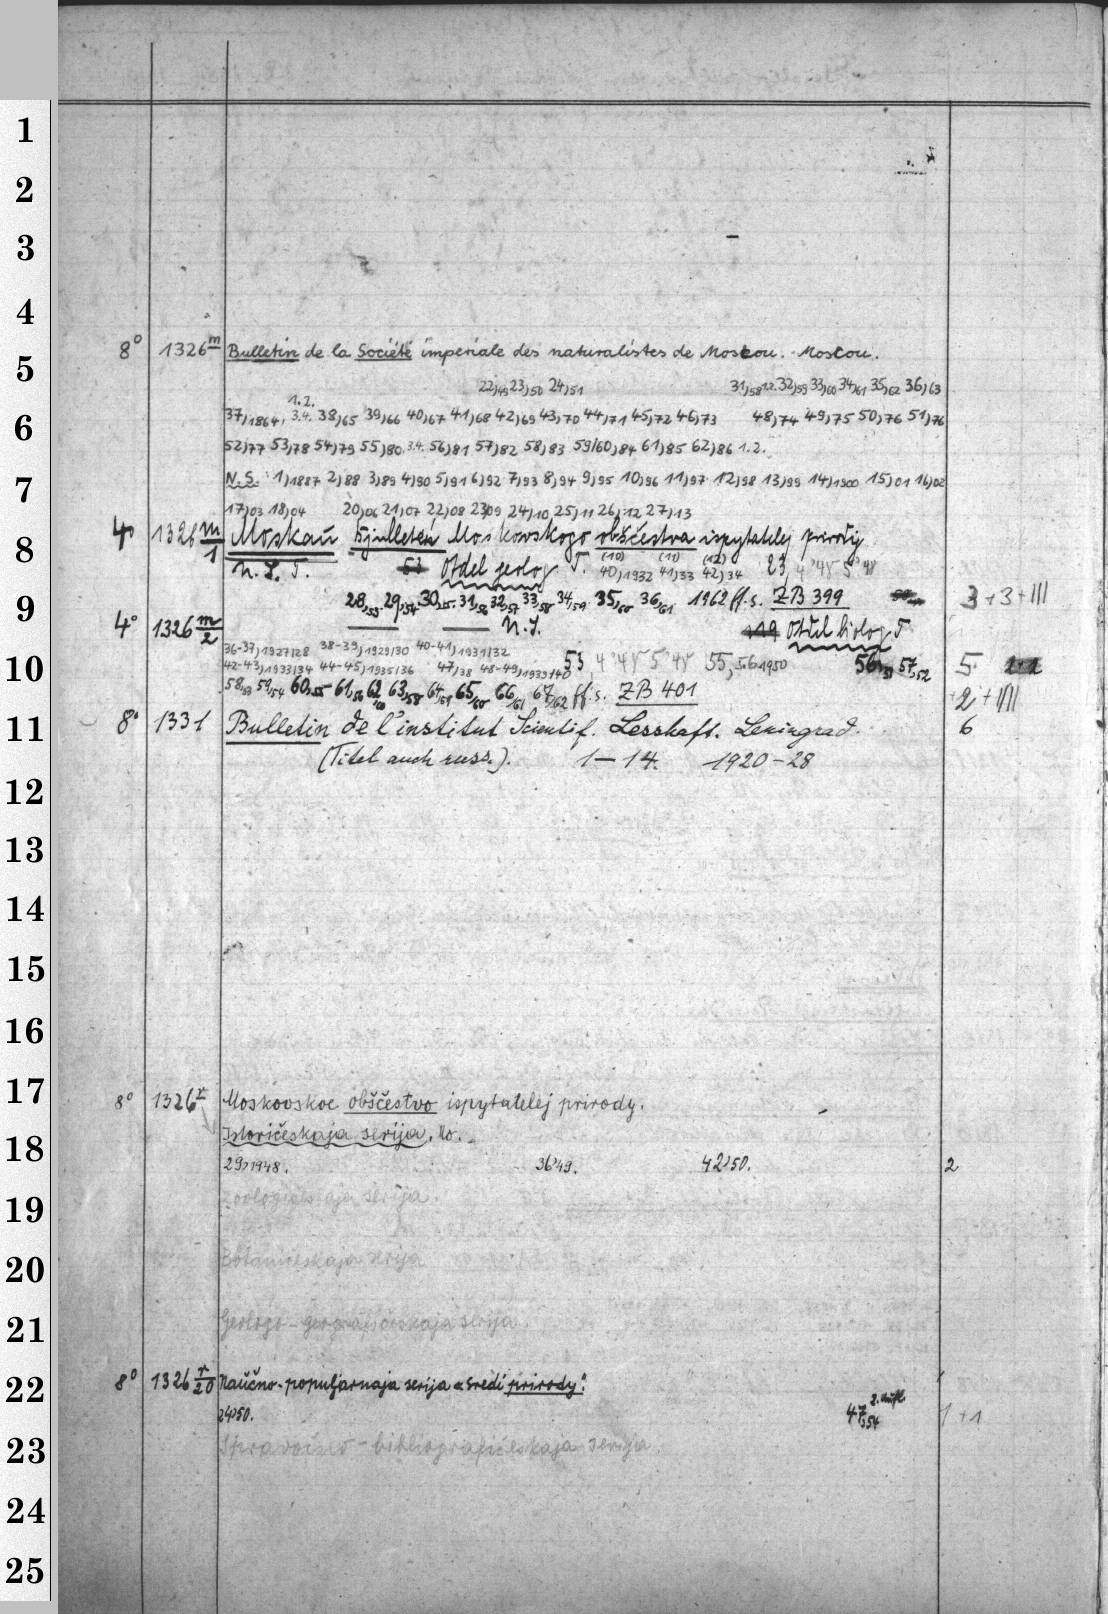 1
2
3
4
5
6
7
8
9
10
11
12
13
14
15
16
17
18
19
20
21
22
23
24
25
8° 1326 m Bulletin de la Société impériale des naturalistes de Moscou. Moscou.
22)49 23)50 24)51 31)58 1.2. 32)59 33)60 34)61 35)62 36)63
37)1864, 1.2. 3.4. 38)65 39)66 40)67 41)68 42)69 43)70 44)71 45)72 46)73 48)74 49)75 50)76 51)76
52)77 53)78 54)79 55)80 3.4. 56)81 57)82 58)83 59/60)84 61)85 62)86 1.2.
N.S. 1)1887 2)88 3)89 4)90 5)91 6)92 7)93 8)94 9)95 10)96 11)97 12)98 13)99 14)1900 15)01 16)02
17)03 18)04 20)06 21)07 22)08 23)09 24)10 25)11 26)12 27)13
4° 1326 m/1 Moskau Bjulleten Moskowskogo obščestva ispytatelej prirody
N.S. T. Otdel geolog T. (10) 40)1932 (11) 41)33 (12) 42)34 23, 4'48 5'48
28,53. 29,54. 30,55. 31,56 32,57 33,58 34,59 35,60 36,61 1962 ff. s. ZB 399 3+3+III
4° 1326 m/2 N.S. Otdel biolog T
36-37)1927/28 38-39)1929/30 40-41)1931/32
42-43)1933/34 44-45)1935/36 47)38 48-49)1939/40 53 4'48 5'48 55,5.6 1950 56,51 57,52 5
58,53 59,54 60,55 61,56 62, 63,58 64,59 65,60 66,61 67,62 ff. s. ZB 401 +2+IIII
8° 1331 Bulletin de l'institut Scientif. Lesshaft. Leningrad. 6
(Titel auch russ.). 1-14. 1920-28
8° 1326 r Moskovskoe obščestvo ispytatelej prirody.
Istoričeskaja serija. No.
29)1948. 36)49. 42)50. 2
Zoologičeskaja serija.
Botaničeskaja serija
Geologo-geografičeskaja serija.
8° 1326 r/20 Naučno-populjarnaja serija "Sredi prirody".
24)50. 47,54 2. Aufl. 1+1
Spravočno-bibliografičeskaja serija.